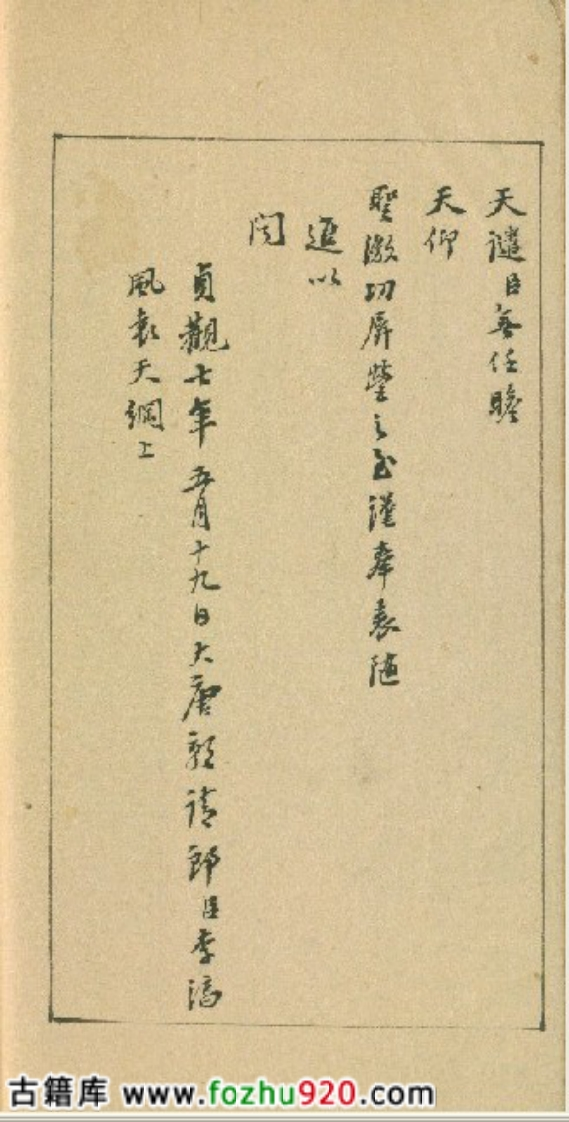 天譴臣無任瞻
天仰
聖激切屏營之至謹奉表随
進以
聞
貞觀七年五月十九日大唐朝請郎臣李淳
風袁天綱上
古籍库 www.fozhu920.com